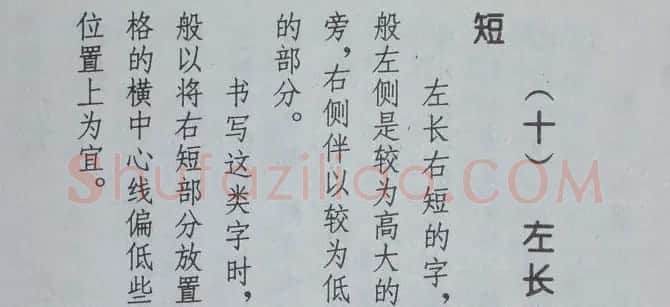 （十） 左长
短
左长右短的字，
般左侧是较为高大的
旁，右侧伴以较为低
的部分。
书写这类字时，
般以将右短部分放置
格的横中心线偏低些
位置上为宜。
Shufaziliao.COM